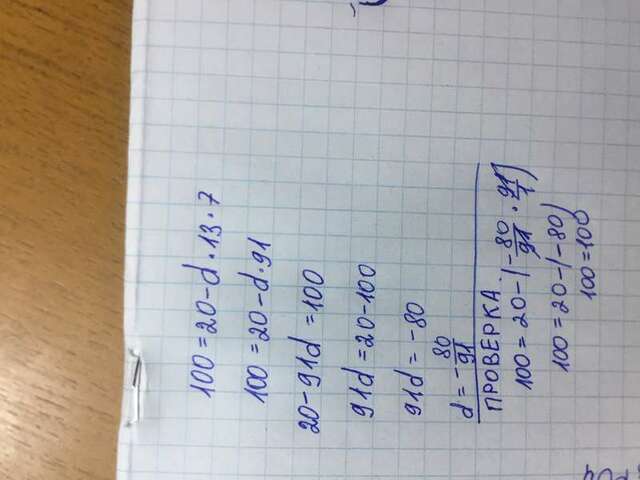 100 = 20 - d · 13 · 7
100 = 20 - d · 91
20 - 91d = 100
91d = 20 - 100
91d = -80
d = - 80/91
ПРОВЕРКА.
100 = 20 - (- 80/91 · 91/1)
100 = 20 - (-80)
100 = 100